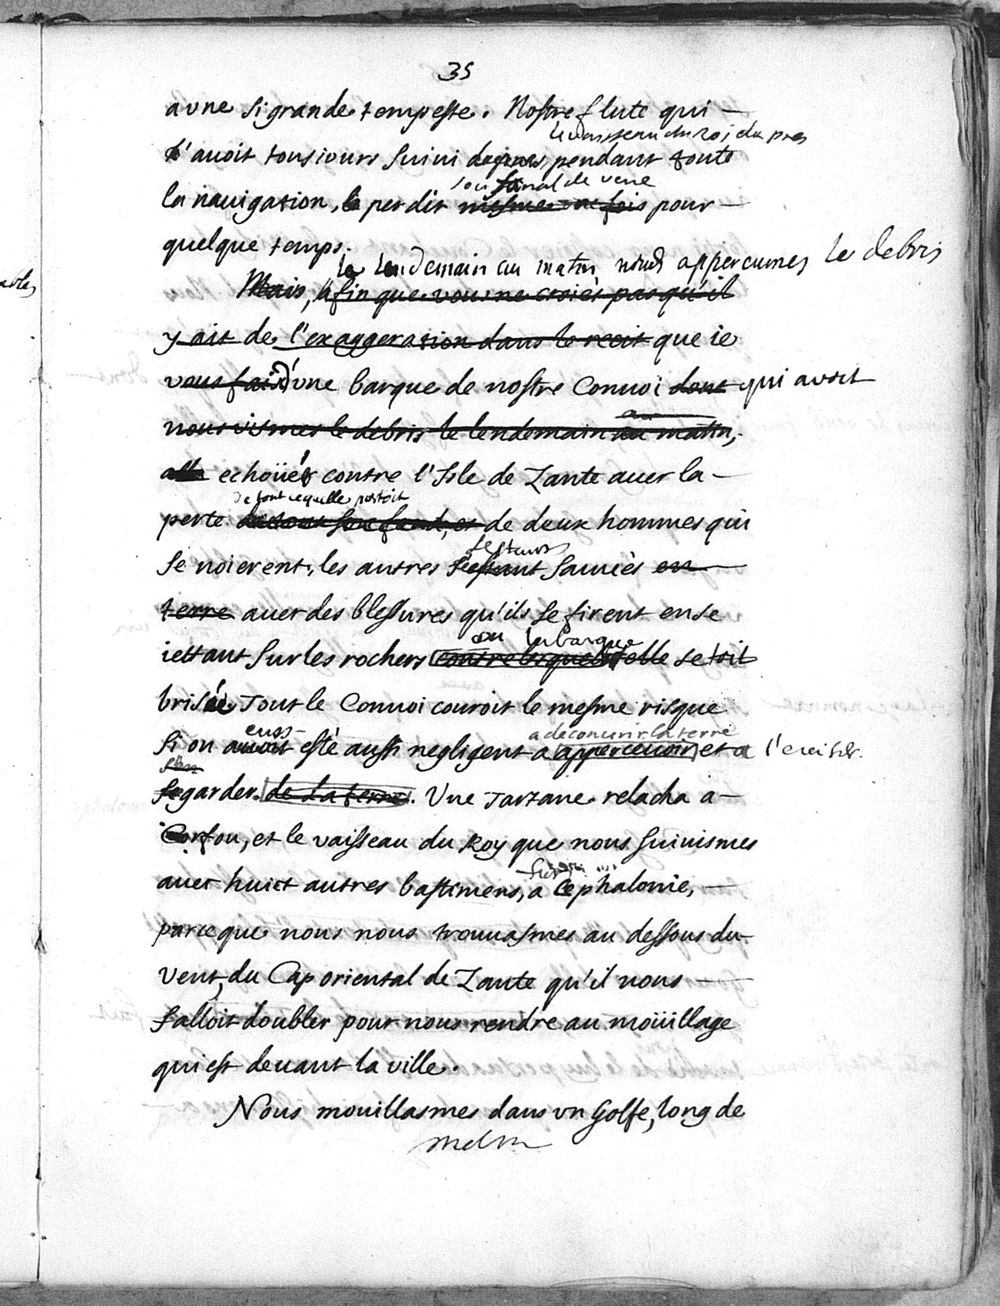 35
a vne si grande tempeste. Nostre flute qui
le vaisseau du roi de pres
l'auoit tousiours suiui pendant toute
son fanal de veue
la nauigation, perdit mesme pour
quelque temps.
le lendemain au matin nous apperceumes le debris
Mais, afin que vous ne croiés pas qu'il
y ait de l'exaggeration dans le recit que ie
vous fais d'vne barque de nostre Conuoi dont qui avoit
au
nous vismes le debris le lendemain au matin,
elle echoüée contre l'Isle de Zante auec la
de tout ce qu'elle portoit
perte de tout son fond, et de deux hommes qui
s'estant
se noierent, les autres s'estant sauués en
terre auec des blessures qu'ils se firent en se
ou la barque
iettant sur les rochers contre lesquels elle se soit
brisée Tout le Conuoi couroit le mesme risque
eust
a decouurir la terre
si on auoit esté aussi negligent a apperceuoir et a l'euiter.
s'en
se garder de la terre. Vne Tartane relacha a
Corfou, et le vaisseau du Roy que nous suiuismes
auec huict autres bastimens, a Cephalonie,
parce que nous nous trouuasmes au dessous du
vent, du Cap oriental de Zante qu'il nous
falloit doubler pour nous rendre au moüillage
qui est deuant la ville.
Nous mouillasmes dans vn Golfe, long de